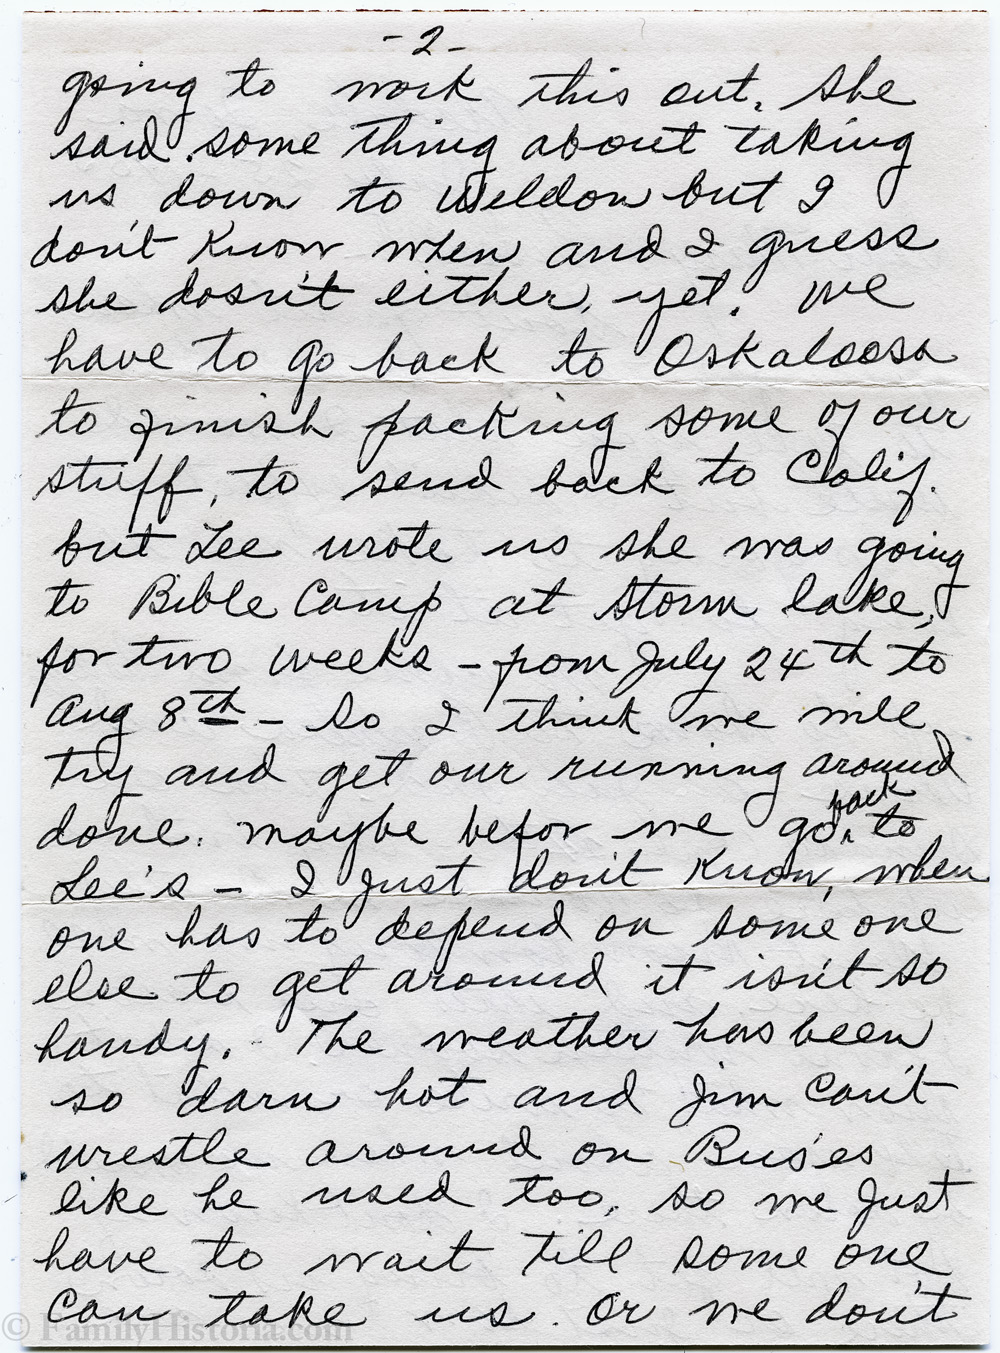 - 2 -
going to work this out. She
said some thing about taking
us down to Weldon but I
don't know when and I guess
she dosn't either, yet. We
have to go back to Oskaloosa
to finish packing some of our
stuff, to send back to Calif.
but Lee wrote us she was going
to Bible Camp at Storm lake,
for two weeks - from July 24th to
Aug 8th - So I think we will
try and get our running around
done. maybe befor we go back to
Lee's - I just don't know, when
one has to depend on some one
else to get around it isn't so
handy. The weather has been
so darn hot and Jim can't
wrestle around on Bus'es
like he used too, so we just
have to wait till some one
can take us. or we don't
© FamilyHistoria.com